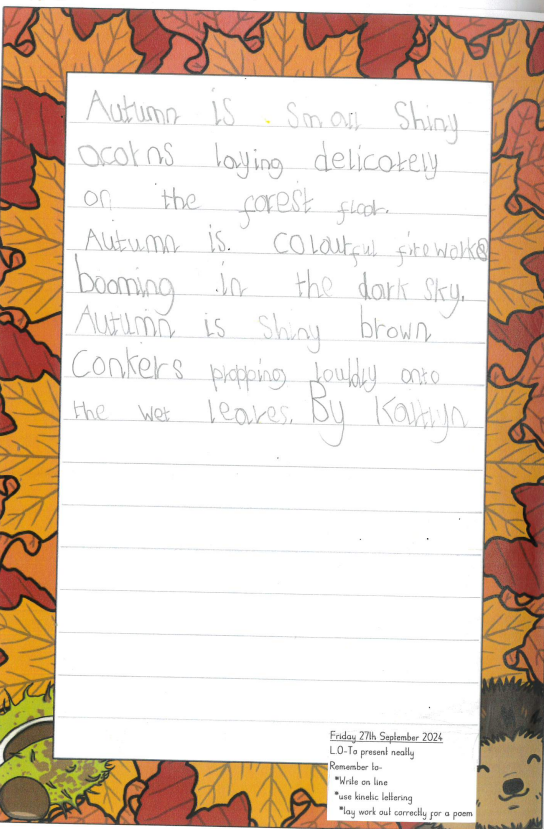 Autumn is small Shiny
acorns laying delicately
on the forest floor.
Autumn is. colourful fireworks
booming in the dark sky.
Autumn is shiny brown
Conkers propping louldly onto
the wet leaves. By Kaitlyn
Friday 27th September 2024
L.O-To present neatly
Remember to-
*Write on line
*use kinetic lettering
*lay work out correctly for a poem